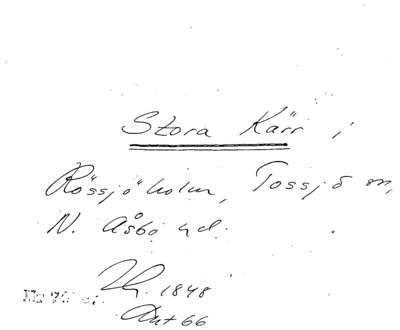 Stora Kärr i
Rössjöholm, Tossjö m,
N. Åsbo hd.
1848
Akt 66